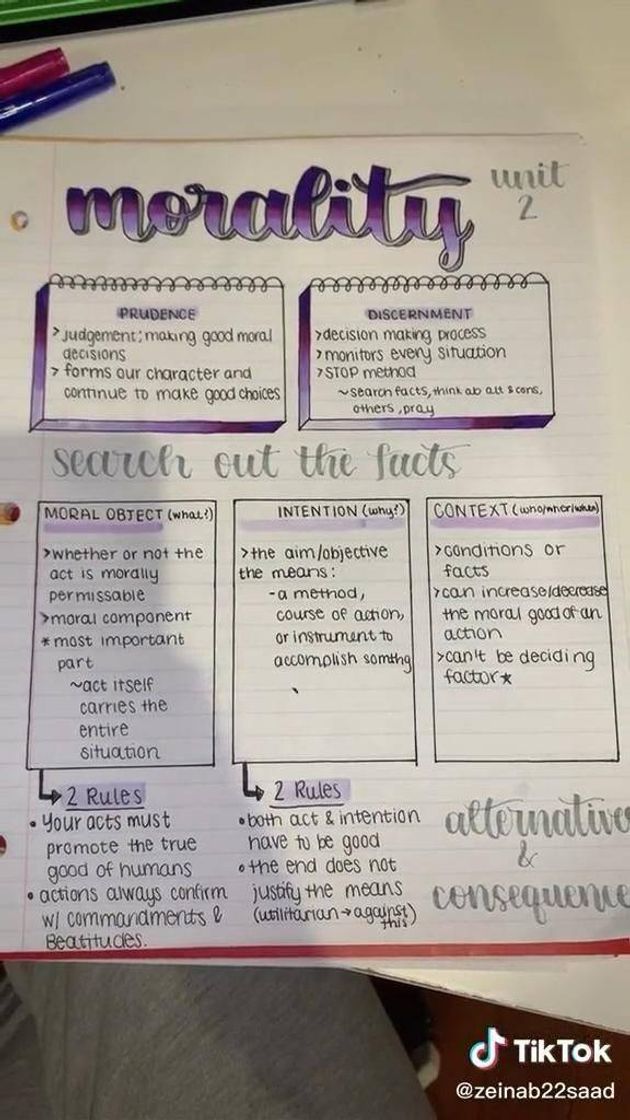 morality
unit
2
PRUDENCE
> Judgement; making good moral
decisions
> forms our character and
continue to make good choices
DISCERNMENT
>decision making process
>monitors every situation
>STOP method
~search facts, think ab alt & cons,
others, pray
search out the facts
MORAL OBJECT (what?)
>whether or not the
act is morally
permissable
>moral component
*most important
part
~act itself
carries the
entire
situation
INTENTION (why?)
>the aim/objective
the means:
-a method,
course of action,
or instrument to
accomplish somthg
CONTEXT (who/wher/when)
>conditions or
facts
>can increase/decrease
the moral good of an
action
>can't be deciding
factor*
2 Rules
• Your acts must
promote the true
good of humans
• actions always confirm
w/ commandments &
Beatitudes.
2 Rules
• both act & intention
have to be good
• the end does not
justify the means
(utilitarian → against
this)
alternative
&
consequence
TikTok
@zeinab22saad